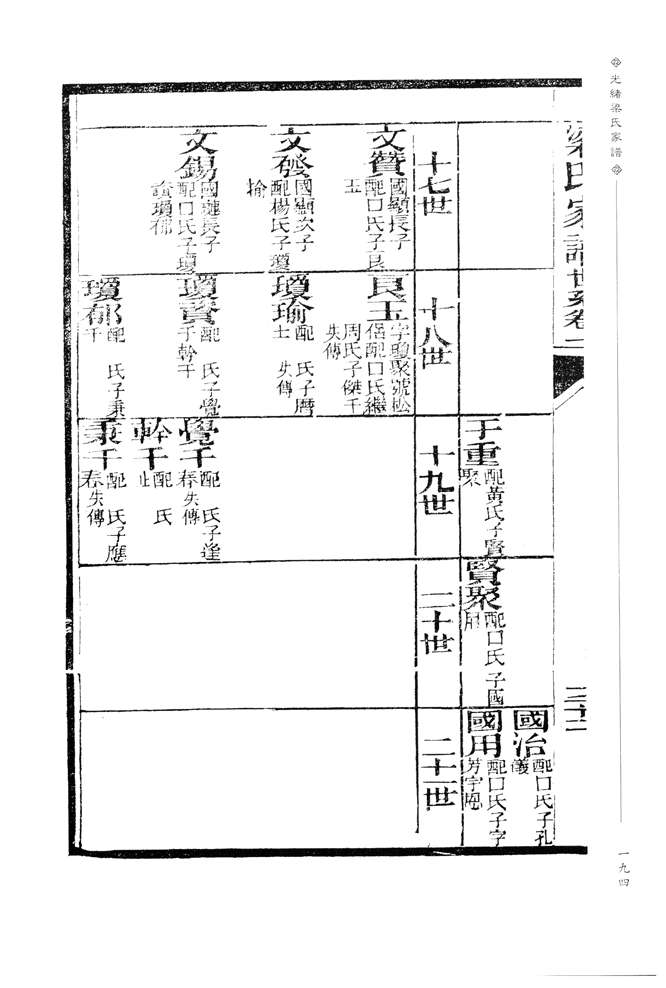 光緒梁氏家譜
一九四
梁氏家譜世系卷一
三十二
于重
配黃氏子賢
聚
賢聚
配口氏子國
用
國治
配口氏子孔
儀
國用
配口氏子字
芳字
十七世
十八世
十九世
二十世
二十一世
文贊
國顯長子
配口氏子良
玉
文發
國顯次子
配楊氏子瓊
瑜
文錫
國璉長子
配口氏子瓊
良玉
字瓊聚號松
侶配口氏繼
周氏子傑千
失傳
瓊瑜
配 氏子曆
士 失傳
配 氏子覺
于幹千
瓊郁
配 氏子秉
千
覺千
配 氏子逢
春失傳
幹千
配 氏
止
秉千
配 氏子應
春失傳